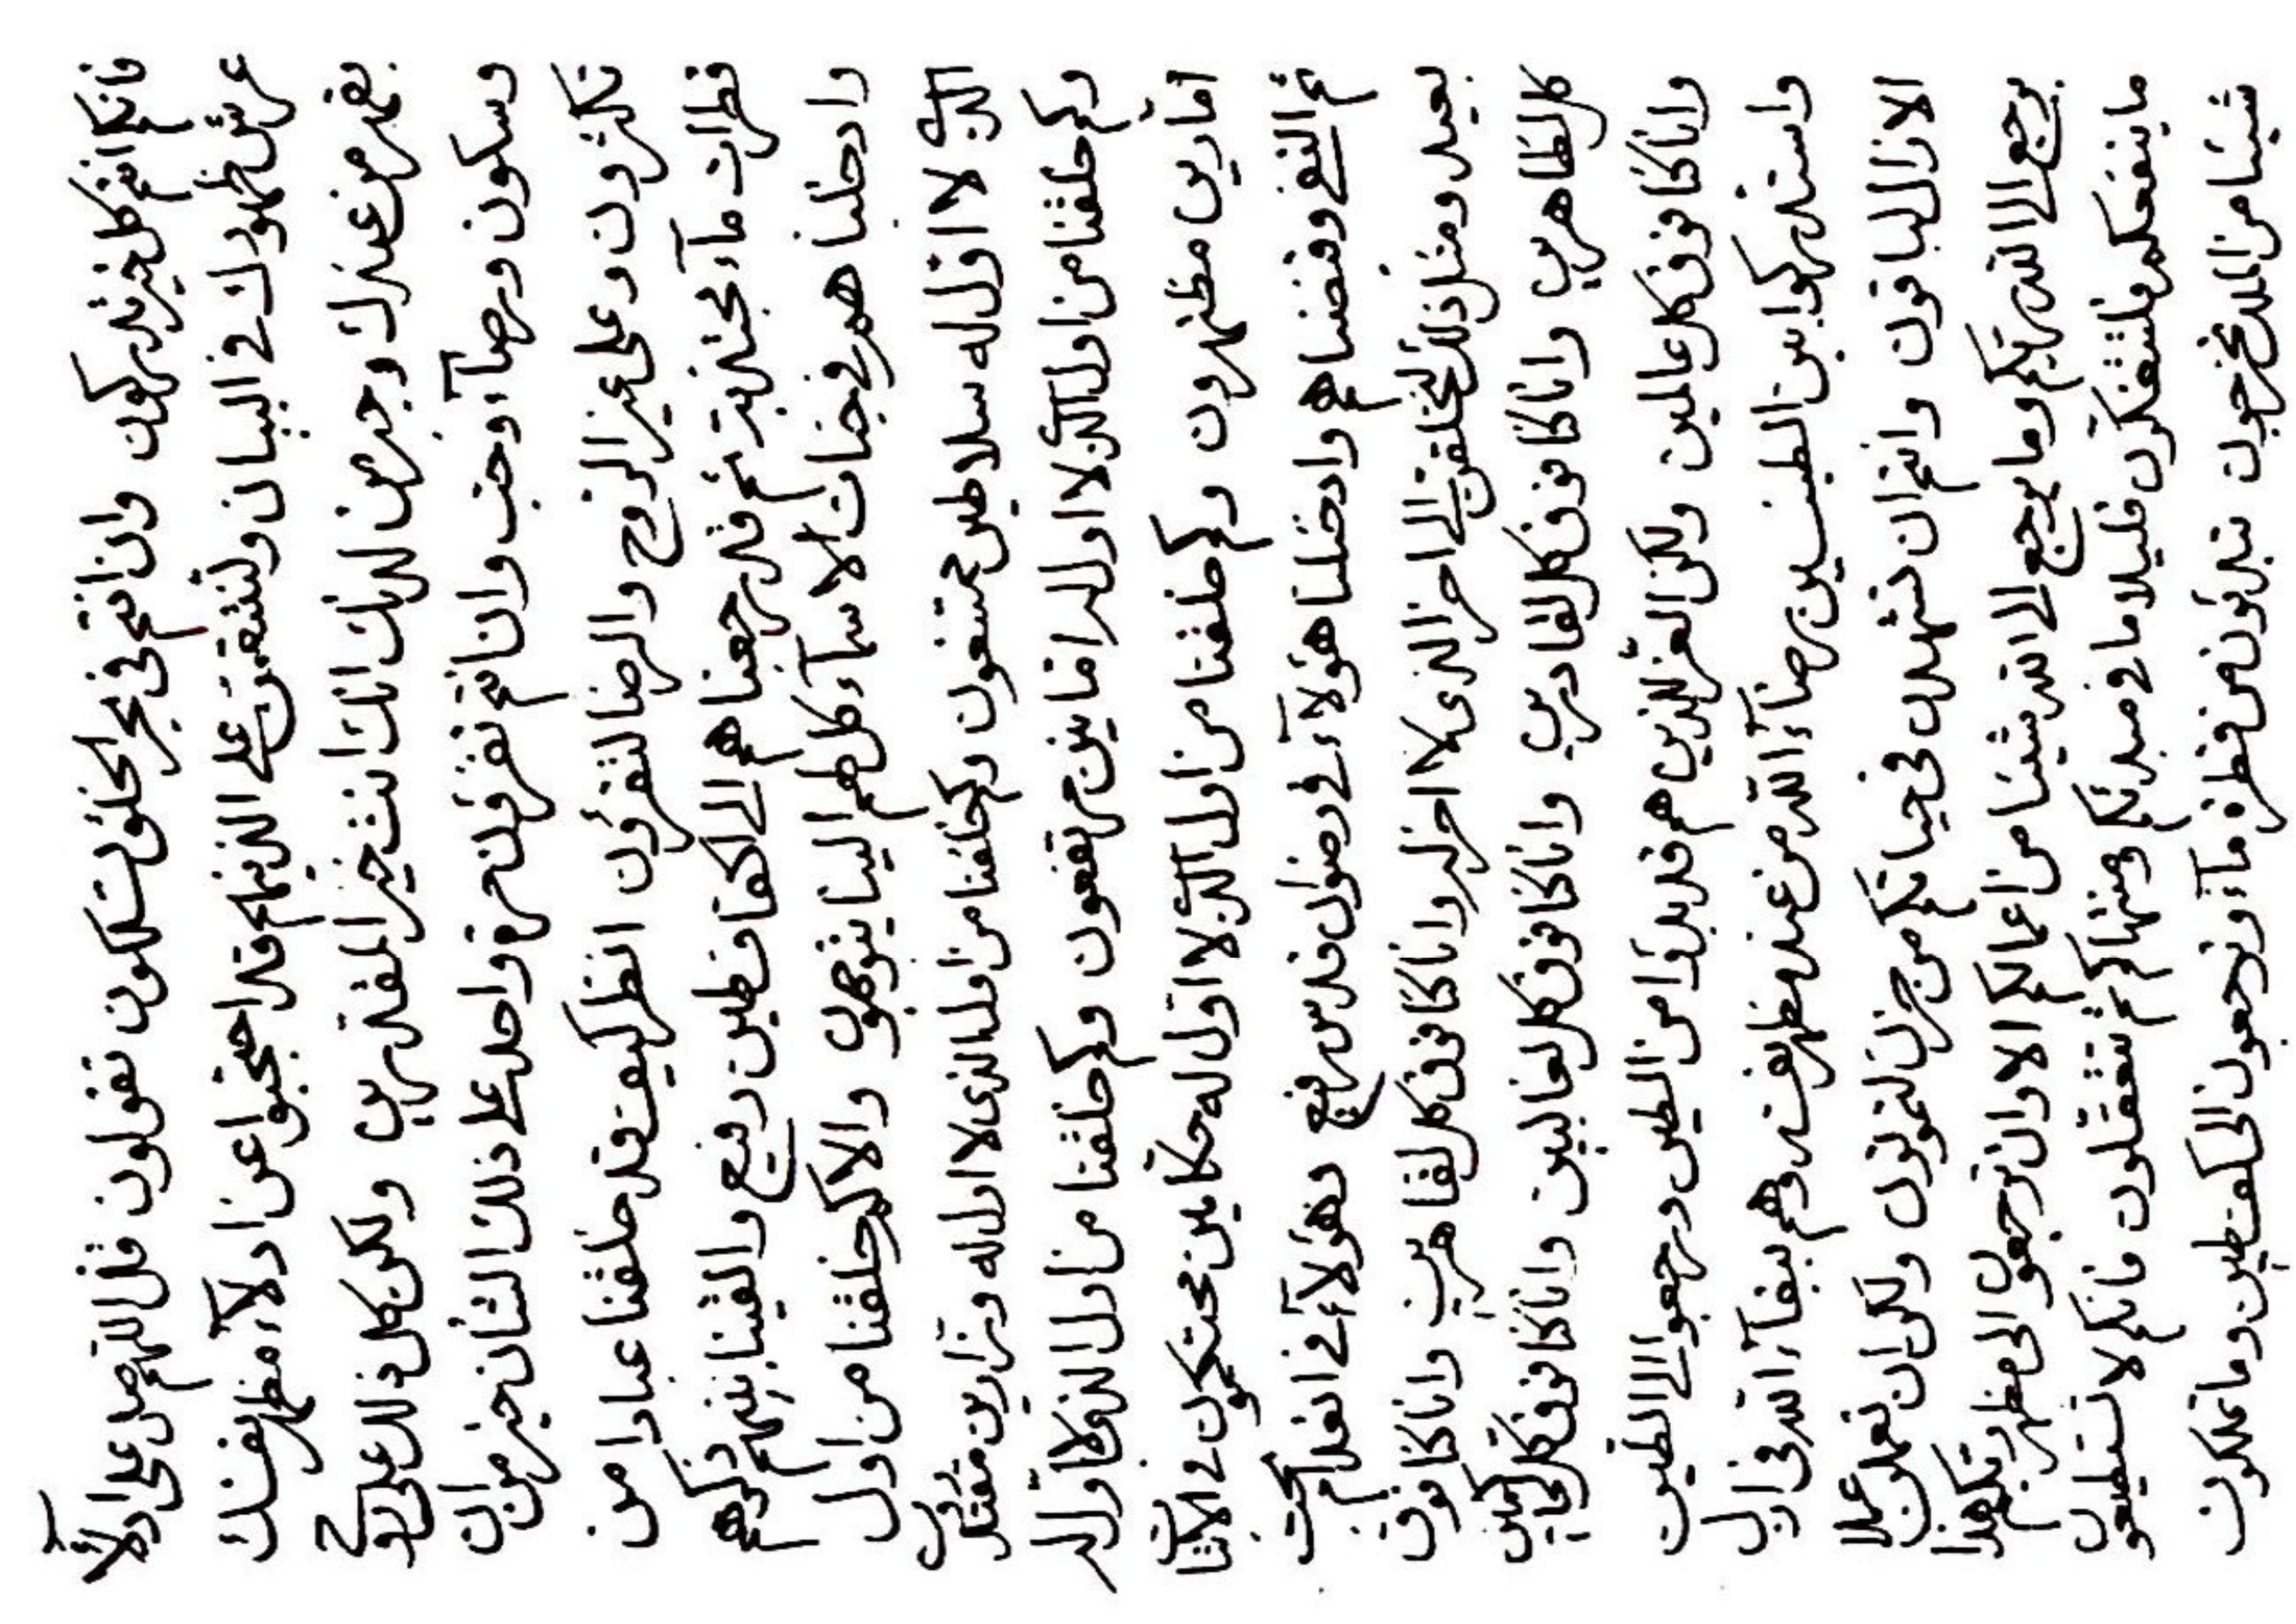 فانكم انتم كل خير تدركون وان انتم في بحر الخلق لتسلكون تقولون قل اللهم صل على ادلاء
عرش ظهورك في البيان ولتشفقن على الذينهم قد احتجبوا عن ادلاء مظهر نفسك
من عندك وجبر من لدنك انك انت خير المقتدرين ولكن كل ذلك على روح
وسكون ورضاء وحب وان انتم مرة واحدة على ذلك الشأن خير من ان
تكثرون وعلى غير الروح والرضا لتقرؤن انظر كيف قد خلقنا عبادا من
قطرات ماء ثم قد رجعناهم الى كفات طين رفيع والقينا بينهم ذكرهم
وادخلناهم في جنات الاسماء كلهم الينا يتوجهون والا كم خلقنا من اول
الذي لا اول له سلاطين ممتنعون وكم خلقنا من اول الذي لا اول له وزارين مقتدرون
وكم خلقنا من اول الذي لا اول له مرتفعون وكم خلقنا من اول الذي لا اول له
امارين مظتهرون وكم خلقنا من اول الذي لا اول له حكامين محتكمون في الانشاء
ثم النفي وقبضناهم وادخلنا هؤلاء في رضوان قدس رفيع وهؤلاء في انعدام تحت
بعيد ومثل ذلك لنخلقن الى اخر الذي لا اخر له وانا كنا فوق كل لقاهرين وانا كنا فوق
كل لظاهرين وانا كنا فوق كل لقادرين وانا كنا فوق كل لغالبين وانا كنا فوق كل لحاكمين
وانا كنا فوق كل عالمين ولكن العز للذين هم قد بدؤا من الطين ورجعوا الى الطين
واستدركوا بين الطينين رضاء الله من عند مظهر نفسه وهم ببقاء الله في ازل
الازال لباقون وانتم ان تشهدن في حياتكم من حزن لتموتون ولكن ان تعملون عملا
يرجع الى الله ربكم وما يرجع الى الله شيئا من اعمالكم الا وان ترجعون الى مظهر ربكم هذا
ما ينفعكم فلتتفكرون قليلا ما في مبدئكم ومنتهاكم ثم تتعقلون فانكم لا تستطيعون
شيئا من الملك تخرجون تبدئون من قطرة ماء وترجعون الى كف طين وما تملكون